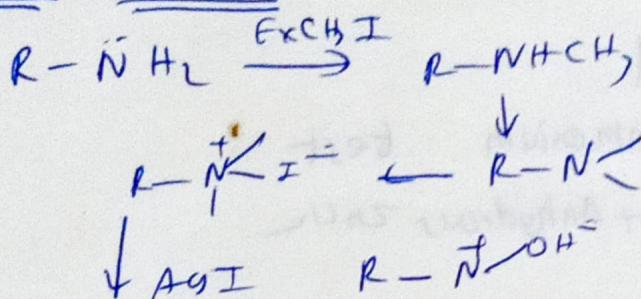 R - N̈H₂ Ex CH₃I → R - NHCH₃
↓
R - N⁺ I⁻ ← R - N
↓ AgI R - N⁺ OH⁻